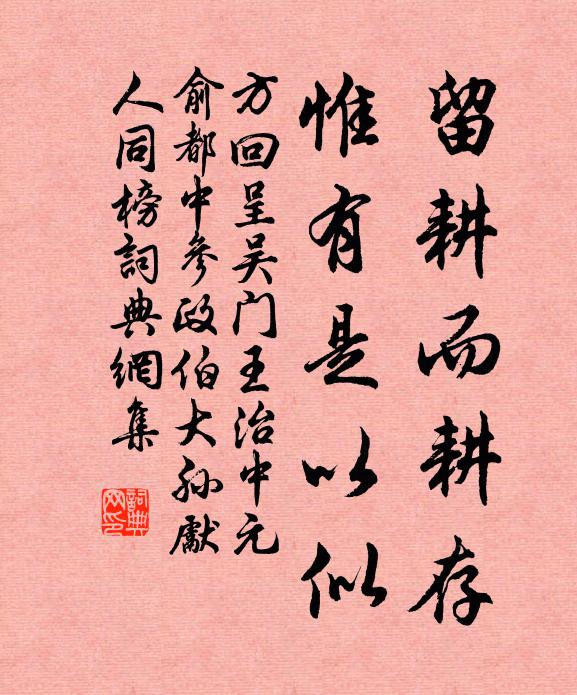 留耕而耕存
惟有是以似
方回呈吴门王治中元
俞都中参政伯大孙献
人同榜詞典網集
詞典网印